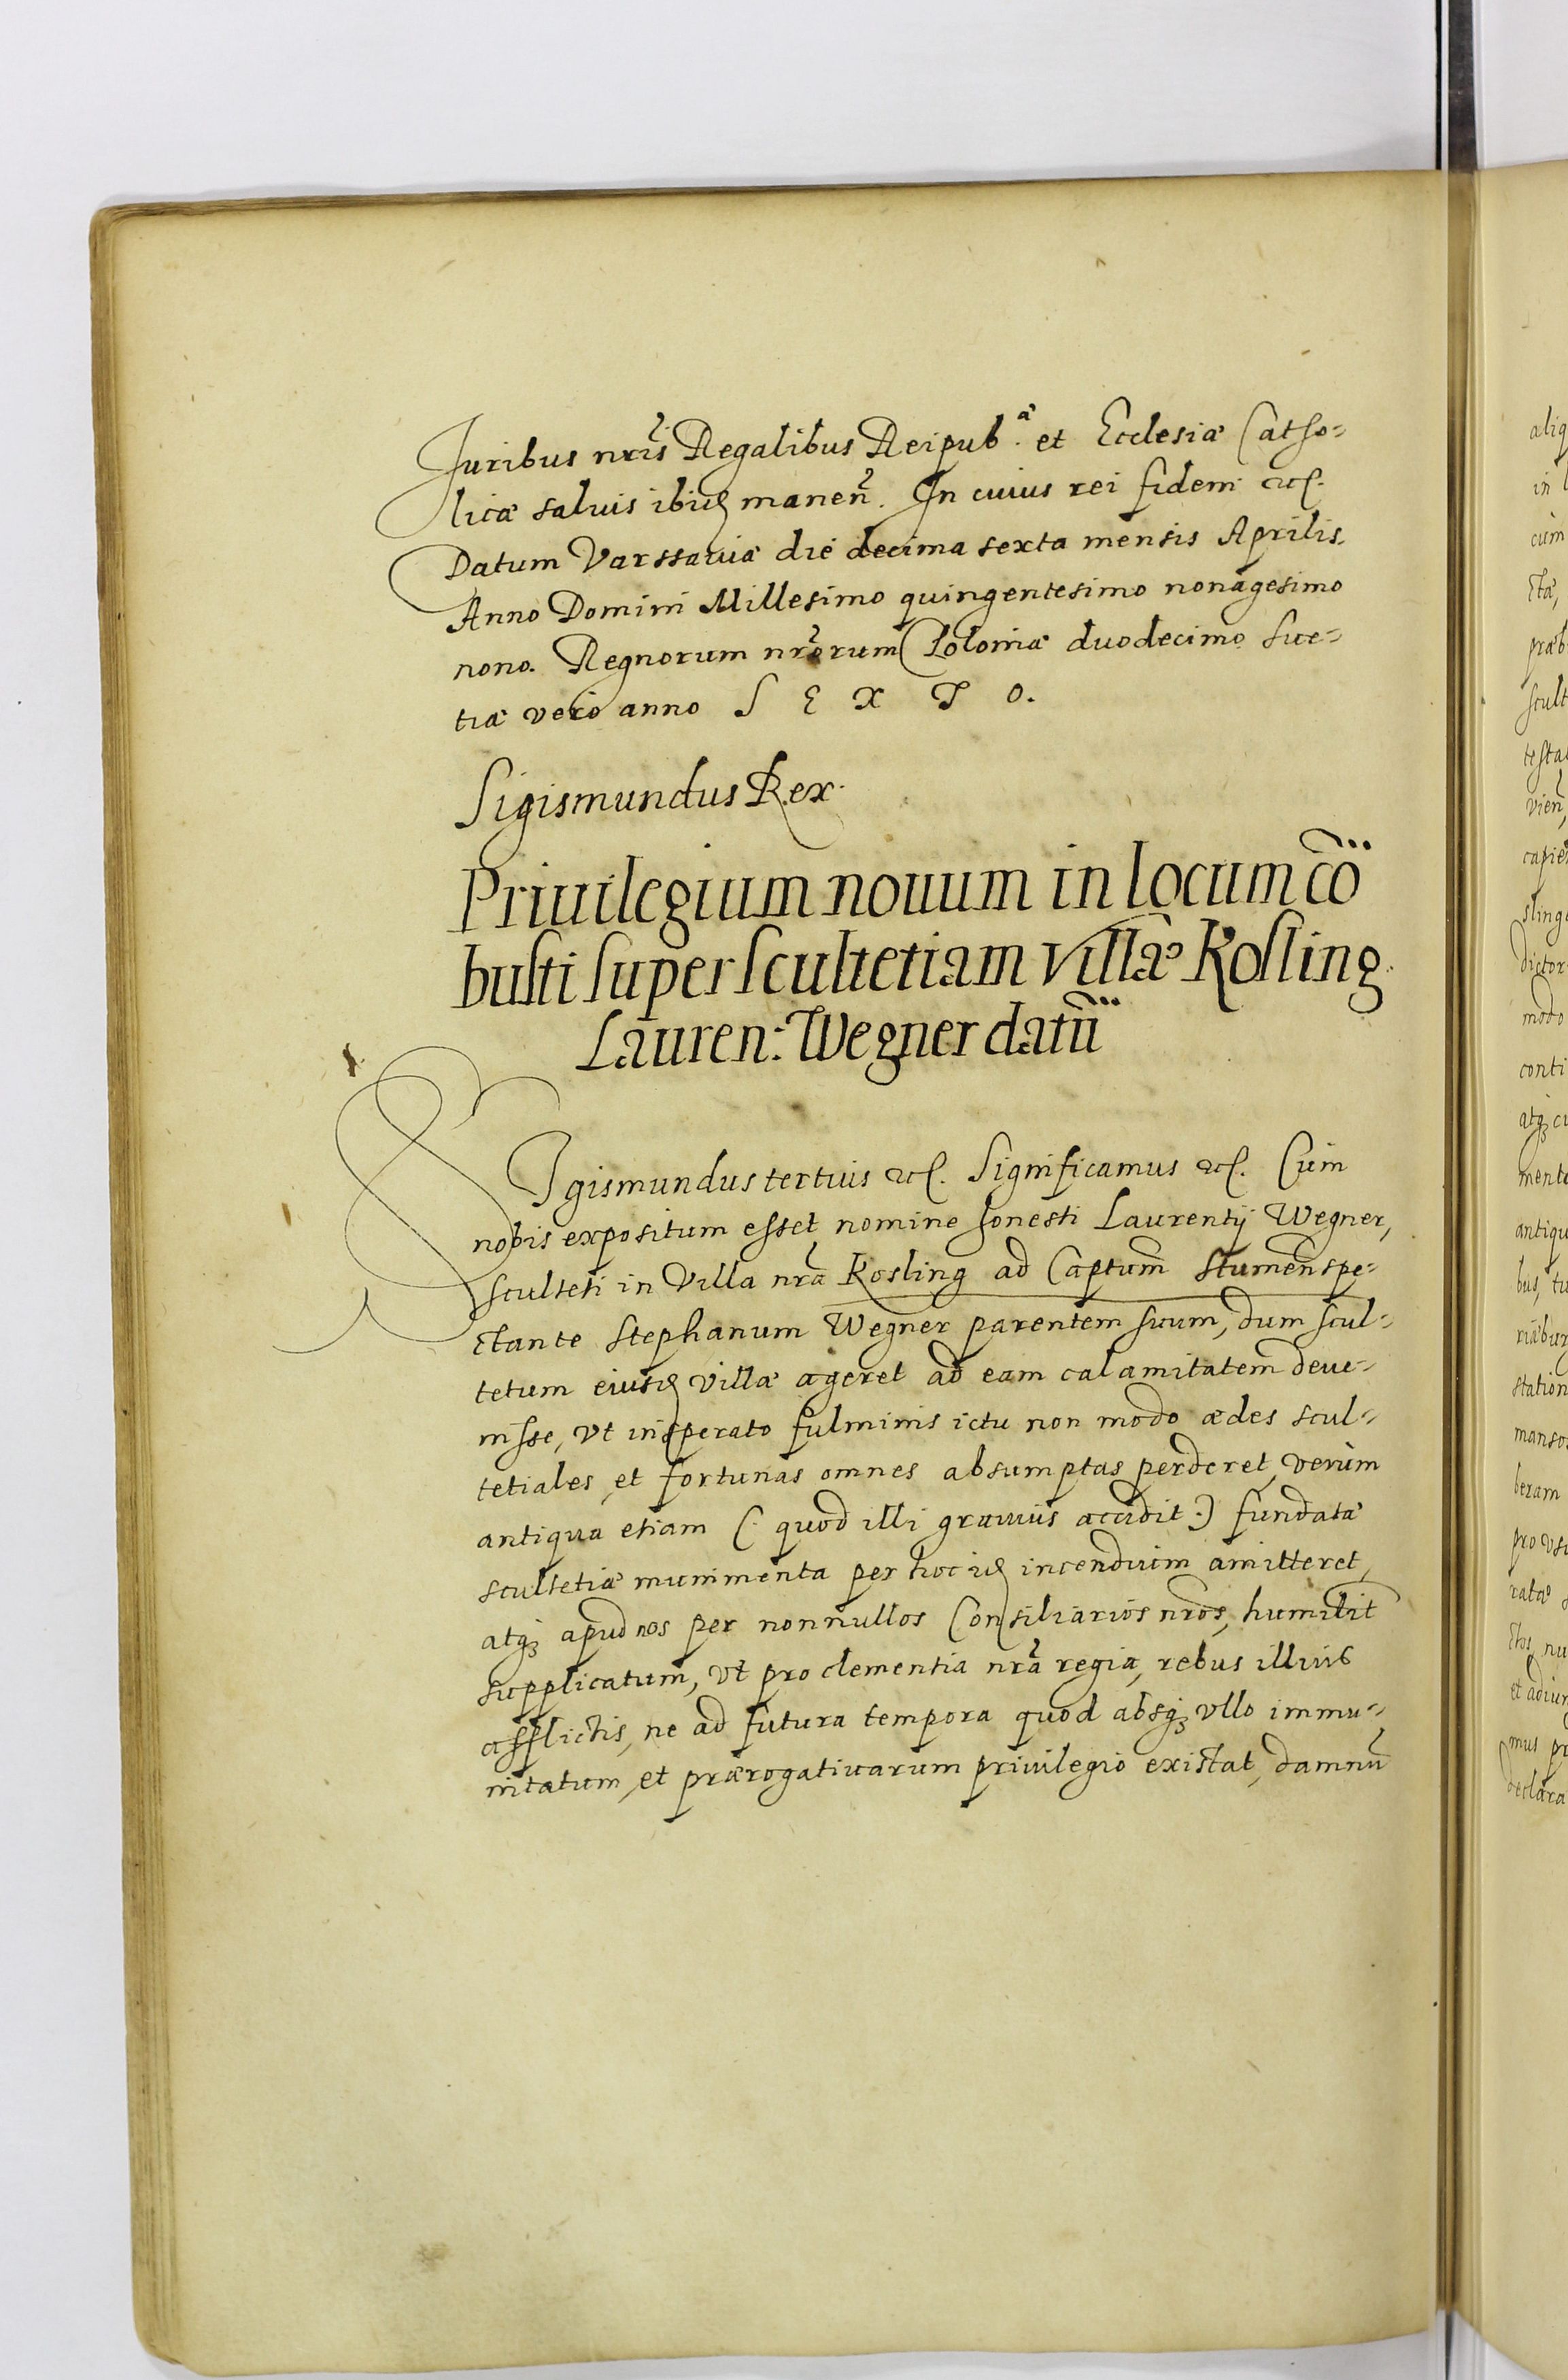 Juribus nris Regalibus Reipub.æ et Ecclesiæ Catho-
licæ saluis ibidem manen. In cuius rei fidem etc.
Datum Varssauiæ die decima sexta mensis Aprilis.
Anno Domini Millesimo quingentesimo nonagesimo
nono. Regnorum nrorum Poloniæ duodecimo Sue-
tiæ vero anno S E X T O.
Sigismundus Rex.
Priuilegium nouum in locum cõ
busti super scultetiam villæ Kosling
Lauren: Wegner datũ
SIgismundus tertius etc. Significamus etc. Cum
nobis expositum esset nomine honesti Laurentij Wegner,
sculteti in Villa nra Kosling ad Captum Stumen spe-
ctante Stephanum Wegner parentem suum, dum scul-
tetum eiusdem villæ ageret ad eam calamitatem deue-
nisse, vt insperato fulminis ictu non modo ædes scul-
tetiales, et fortunas omnes absumptas perderet, verùm
antiqua etiam (: quod illi grauius accidit :) fundatæ
scultetiæ munimenta per hoc idem incendium amitteret,
atq; apud nos per nonnullos Consiliarios nros, humilit
supplicatum, vt pro clementia nra regia, rebus illius
afflictis, ne ad futura tempora quod absq; vllo immu-
nitatum, et prærogatiuarum priuilegio existat, damnũ